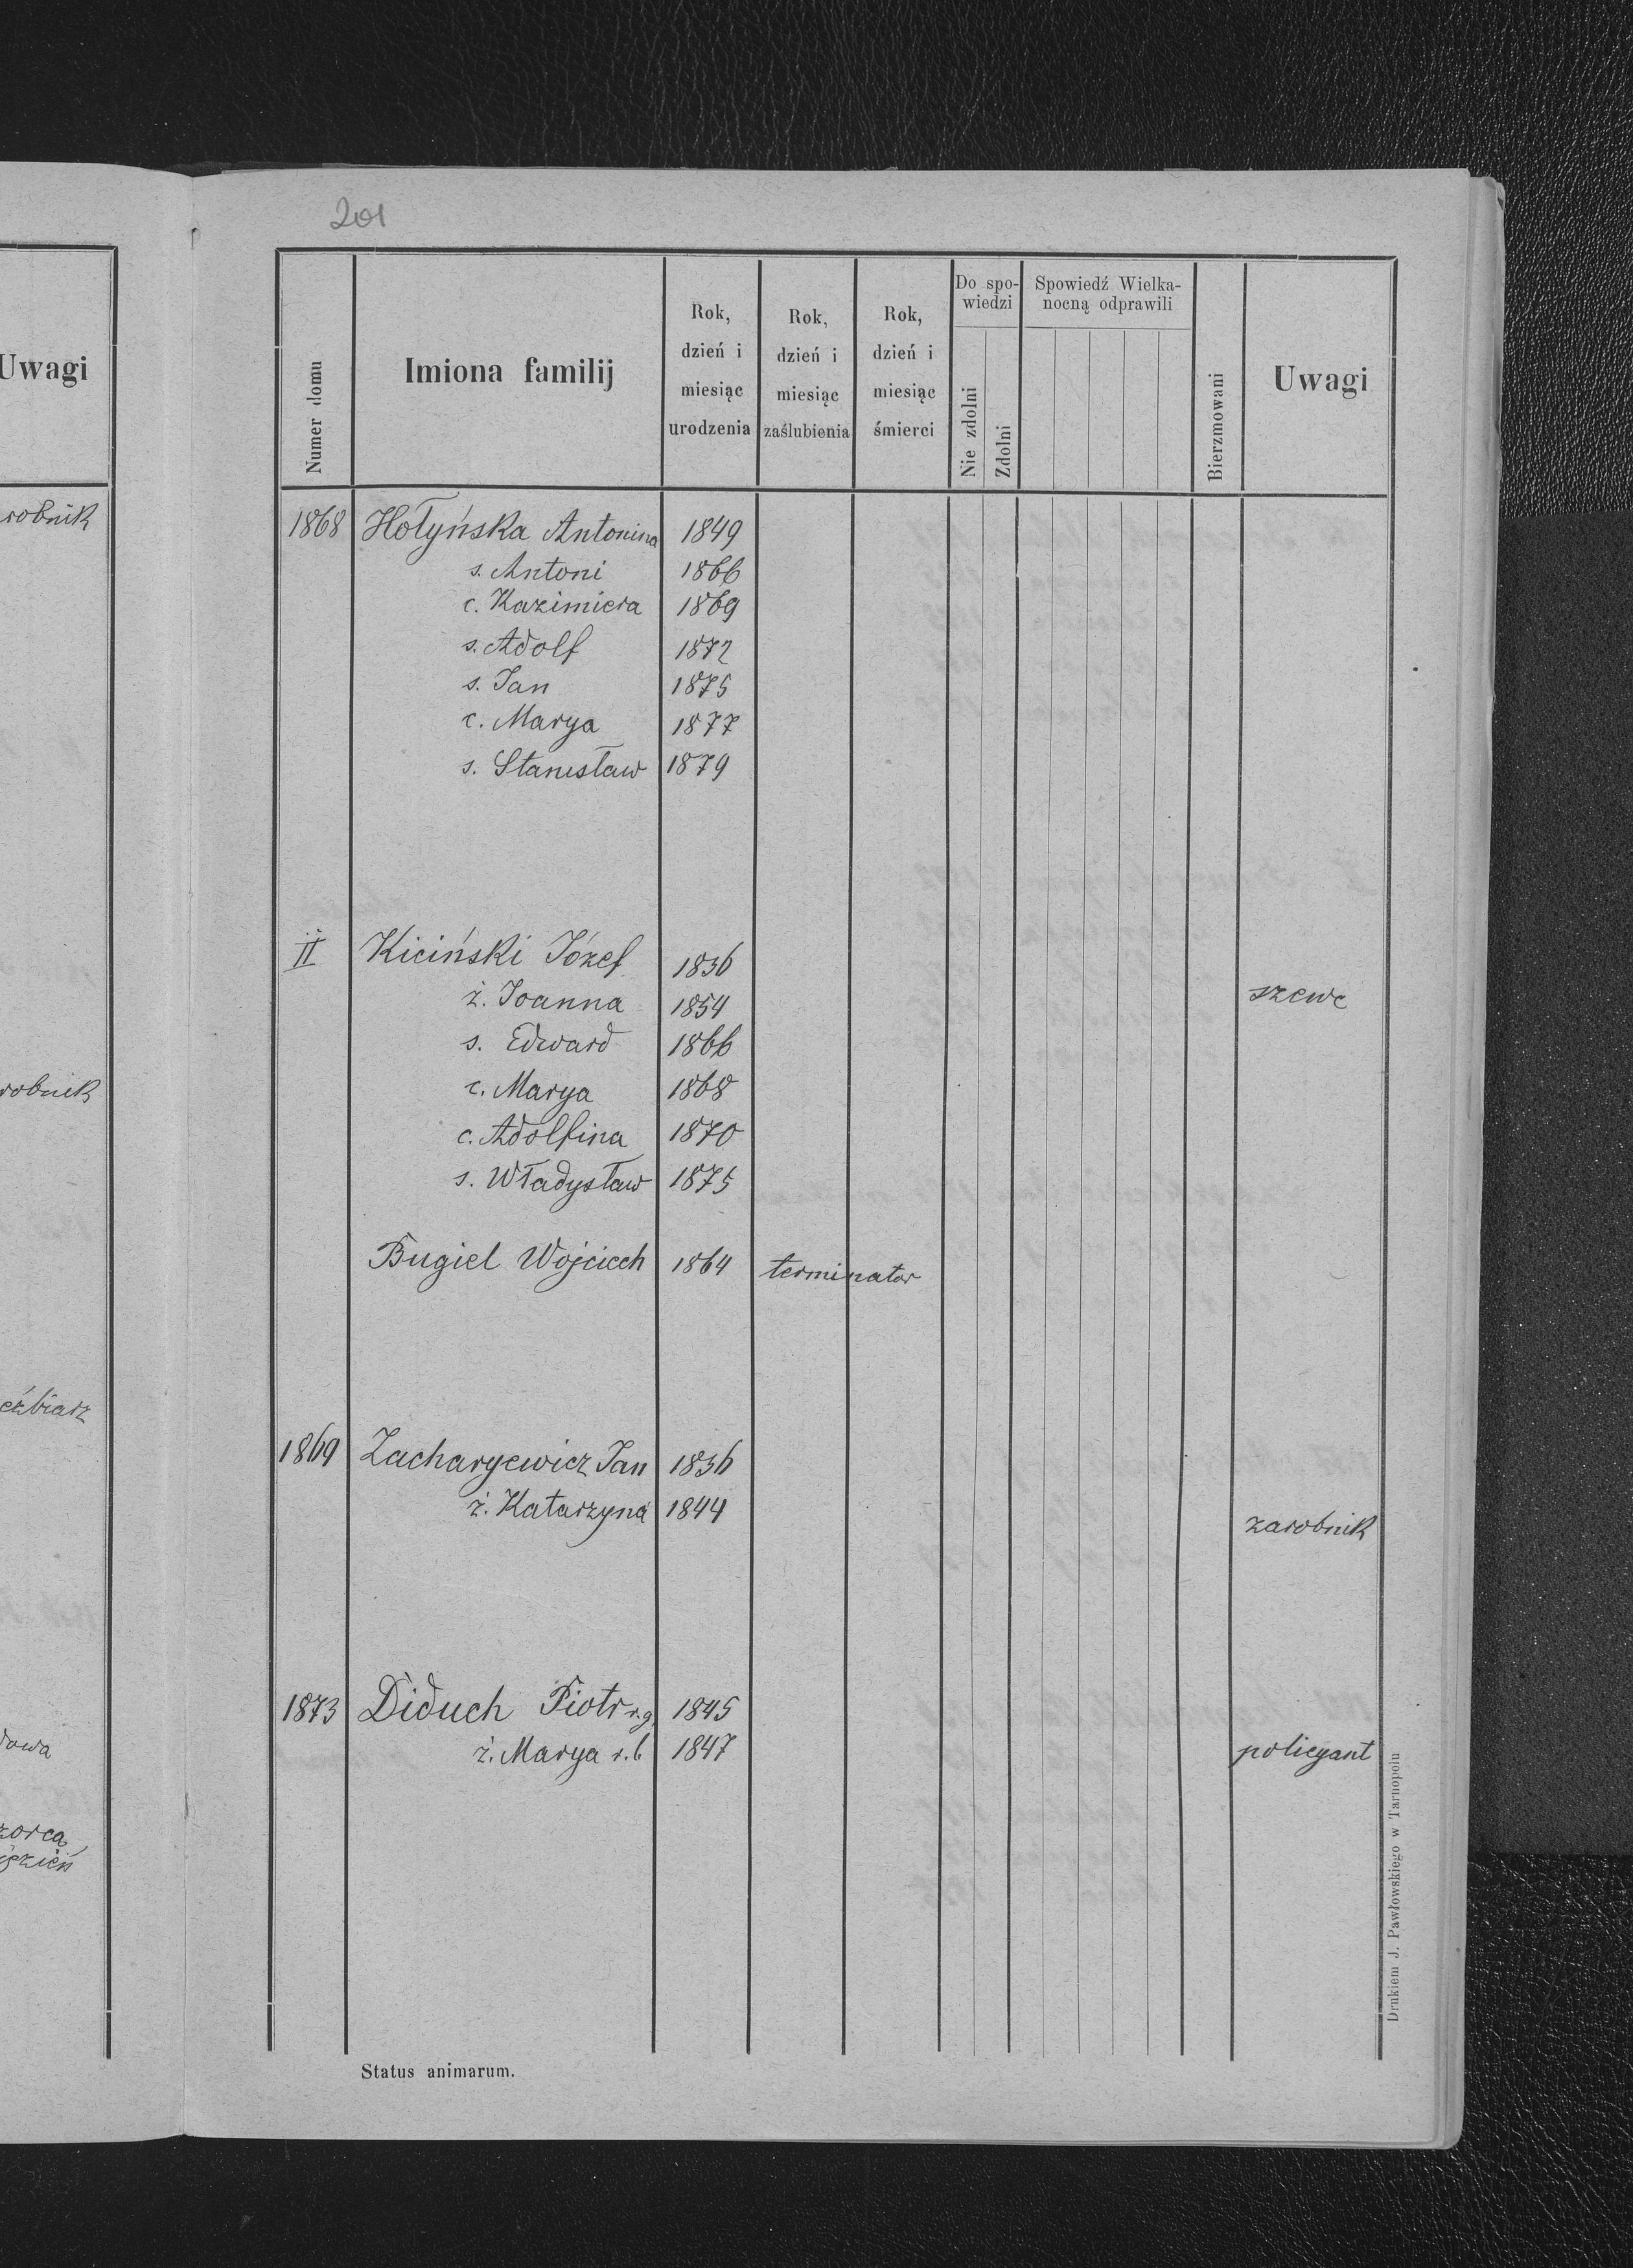 201
Uwagi
robnik
robnik
dowa
Numer domu
Imiona familij
Rok,
dzień i
miesiąc
urodzenia
Rok,
dzień i
miesiąc
zaślubienia
Rok,
dzień i
miesiąc
śmierci
Do spo-
wiedzi
Nie zdolni
Zdolni
Spowiedź Wielka-
nocną odprawili
Bierzmowani
Uwagi
1868 Hołyńska Antonina 1849
s. Antoni 1866
c. Kazimiera 1869
s. Adolf 1872
s. Jan 1875
c. Marya 1877
s. Stanisław 1879
II Kiciński Józef 1836
ż. Joanna 1854 szewc
s. Edward 1866
c. Marya 1868
c. Adolfina 1870
s. Władysław 1875
Bugiel Wojciech 1864 terminator
1869 Zacharyewicz Jan 1836
ż. Katarzyna 1844 zarobnik
1873 Diduch Piotr r.g. 1845
ż. Marya r.l. 1847 policyant
Status animarum.
Drukiem J. Pawłowskiego w Tarnopolu